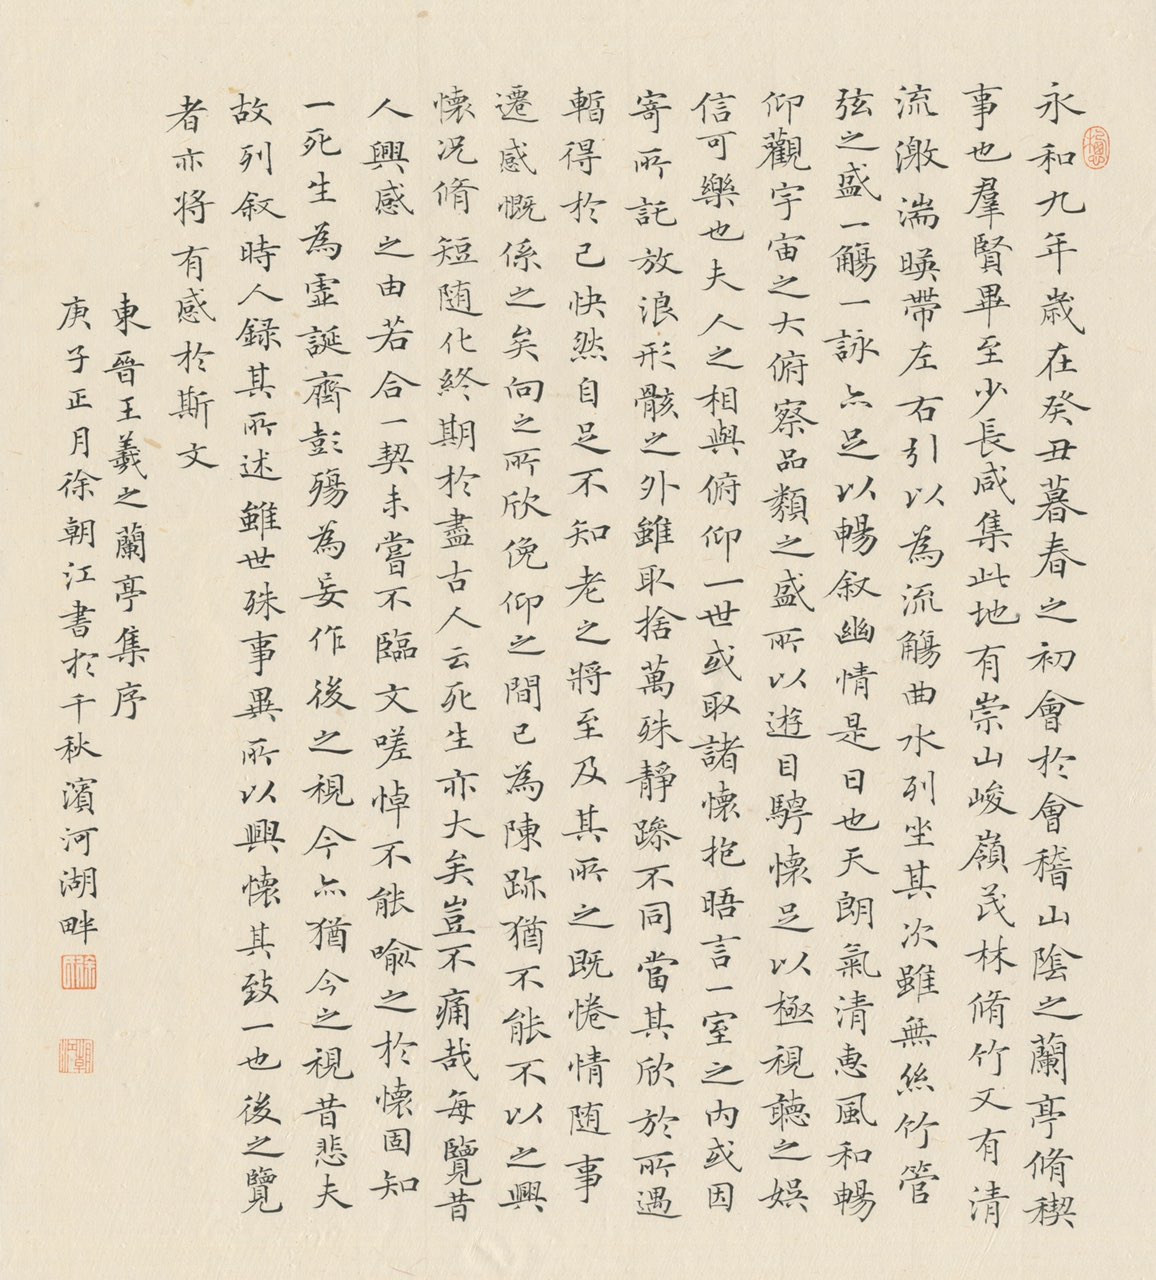 永和九年歲在癸丑暮春之初會於會稽山陰之蘭亭脩稧
事也羣賢畢至少長咸集此地有崇山峻嶺茂林脩竹又有清
流激湍暎帶左右引以為流觴曲水列坐其次雖無絲竹管
弦之盛一觴一詠亦足以暢叙幽情是日也天朗氣清惠風和暢
仰觀宇宙之大俯察品類之盛所以遊目騁懷足以極視聽之娛
信可樂也夫人之相與俯仰一世或取諸懷抱晤言一室之內或因
寄所託放浪形骸之外雖取捨萬殊靜躁不同當其欣於所遇
暫得於己快然自足不知老之將至及其所之既惓情随事
遷感慨係之矣向之所欣俛仰之間已為陳跡猶不能不以之興
懷况脩短随化終期於盡古人云死生亦大矣豈不痛哉每覽昔
人興感之由若合一契未嘗不臨文嗟悼不能喻之於懷固知
一死生為虛誕齊彭殤為妄作後之視今亦猶今之視昔悲夫
故列叙時人録其所述雖世殊事異所以興懷其致一也後之覽
者亦将有感於斯文
東晉王羲之蘭亭集序
庚子正月徐朝江書於千秋濱河湖畔